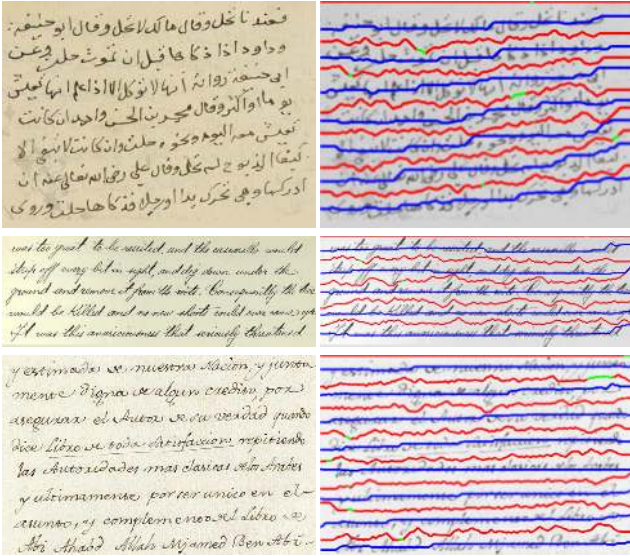 فعندنا تحل وقال مالك لا تحل وقال ابو حنيفة
وداود اذا ذكاها قبل ان تموت حلت وعن
ابى حنيفة رواية انها لا توكل الا اذا علم انها تعيش
يوما او اكثر وقال محمد بن الحسن واحد ان كانت
تعيش معه اليوم ونحوه حلت وان كانت لا تبقى الا
كبقا الذبوح لم تحل وقال علي رضى الله تعالى عنه ان
ادركها وهى تحرك يدا او رجلا فذكاها حلت وروى
was too great to be resisted, and the animals would
strip off every bit in sight, and dig down under the
ground and remove it from the roots. Consequently the tree
would be killed and no new shoots could ever
It was this avariciousness that seriously threatened
y estimada de nuestra Nacion, y junta
mente digna de algun credito por
asegurar el Autor de su verdad quando
dice Libro de toda Satisfaccion, repitiendo
las Autoridades mas clasicas de los Arabes
y ultimamente por ser unico en el
asunto, y complemento del Libro de
Abi Abd Allah Mjamed Ben Abi